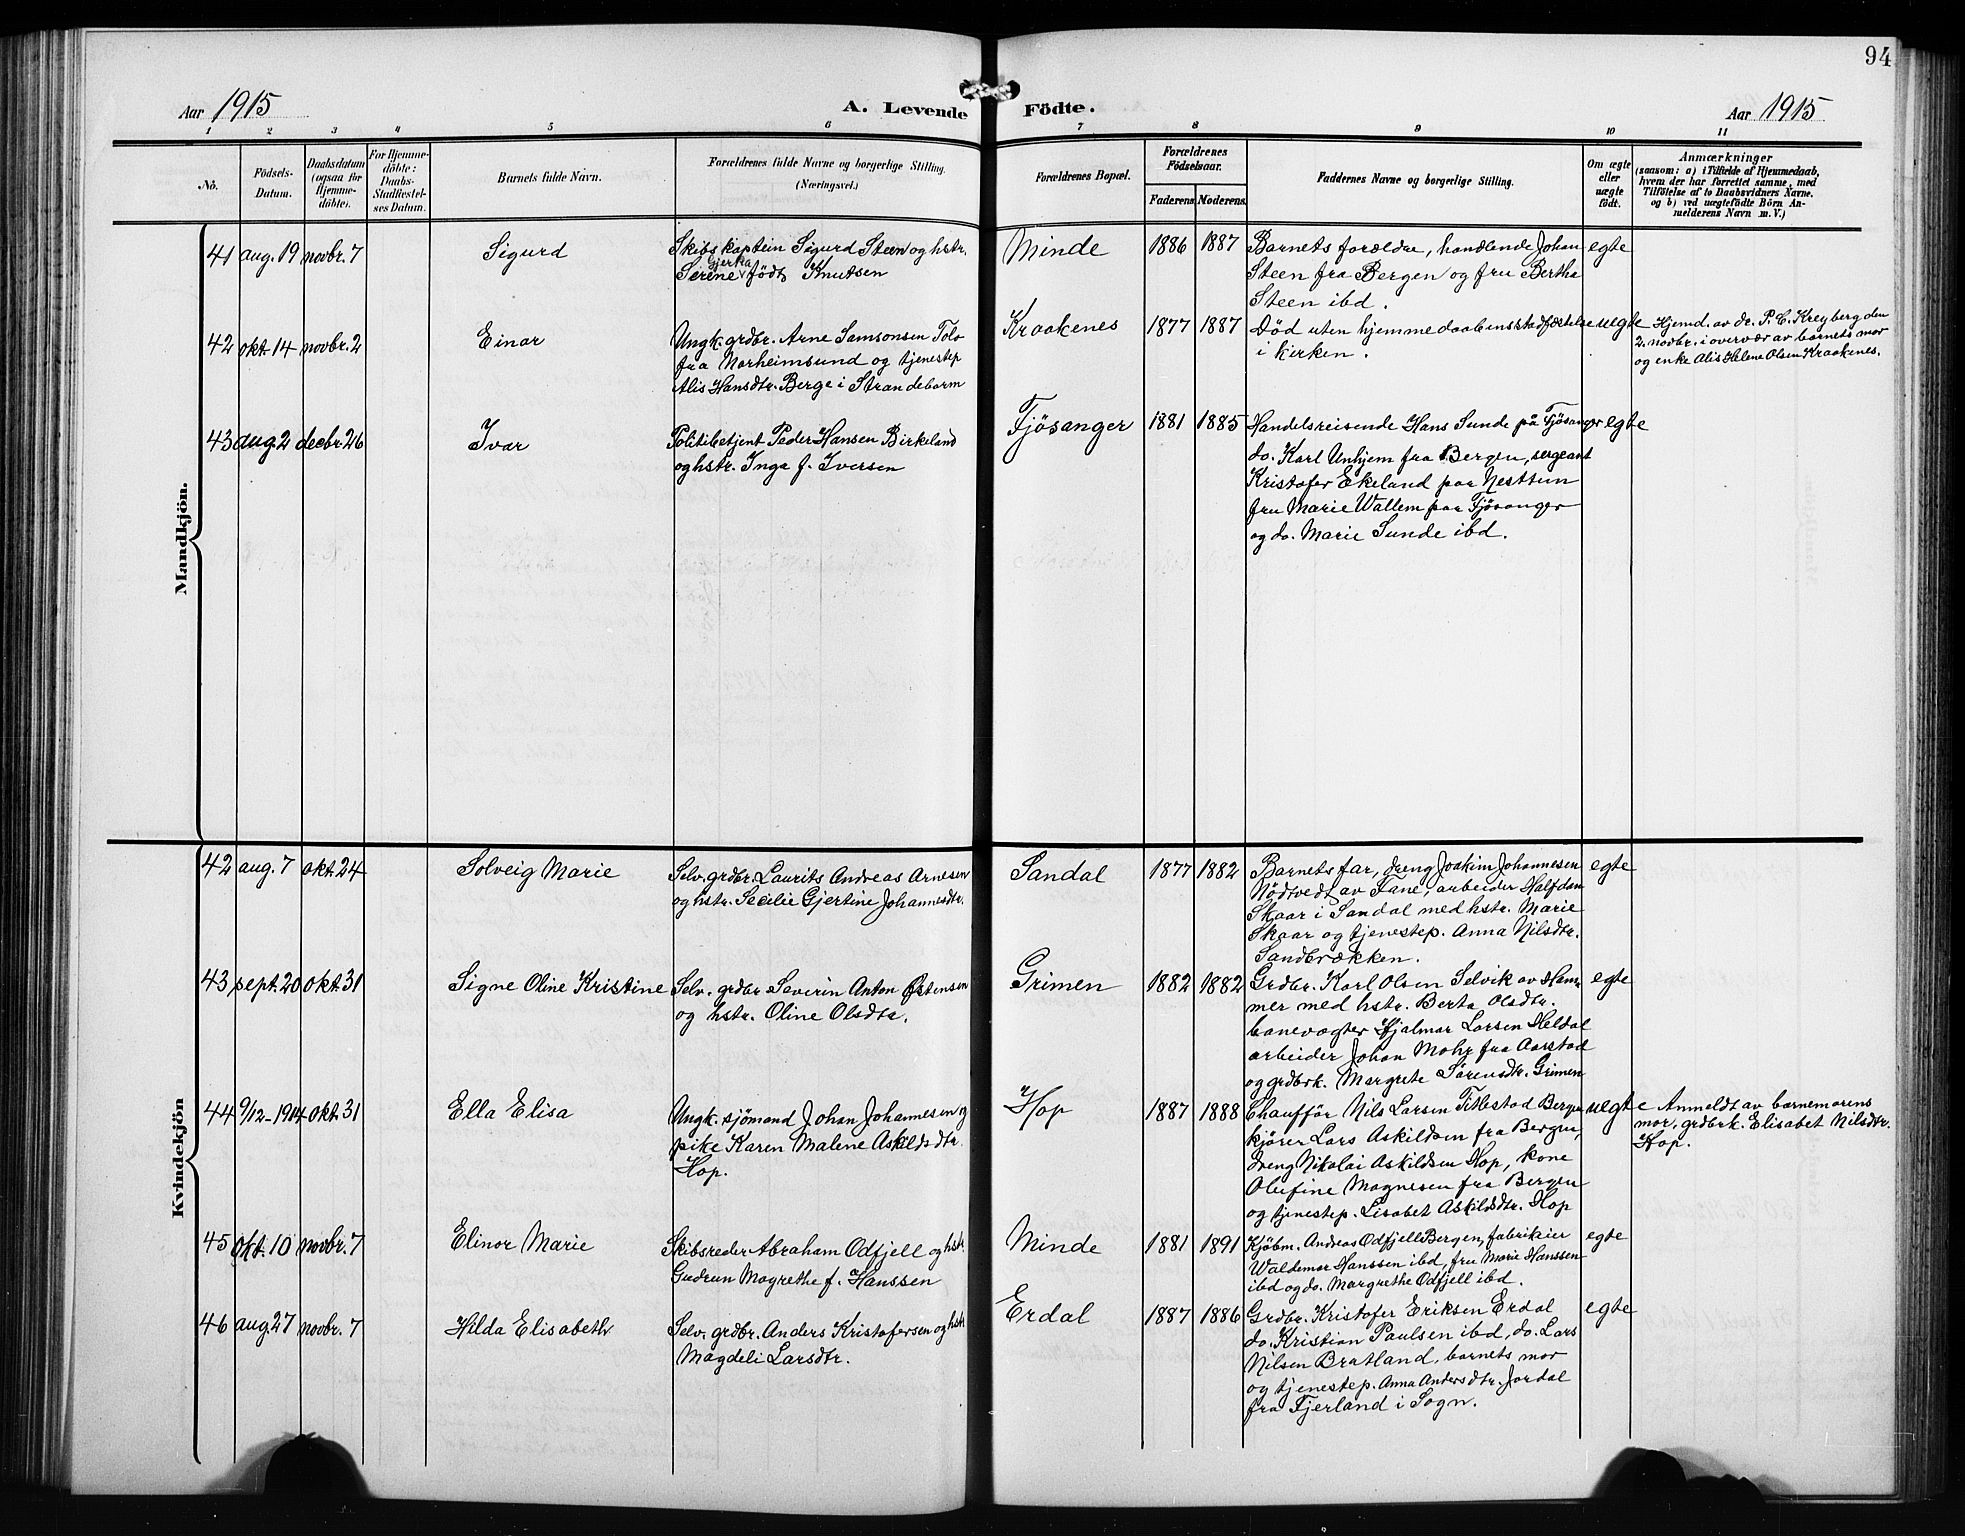 94
Aar 1915
A. Levende Födte.
Aar 1915
1 2 3 4 5 6 7 8 9 10 11
No.
Födsels-
Datum.
Daabsdatum
(ogsaa for
Hjemme-
döbte).
For Hjemme-
döbte:
Daabs-
Stadfæstel-
ses Datum.
Barnets fulde Navn.
Forældrenes fulde Navne og borgerlige Stilling.
(Næringsvei.)
Forældrenes Bopæl.
Forældrenes
Födselsaar.
Faderens Moderens
Faddernes Navne og borgerlige Stilling.
Om ægte
eller
uægte
födt.
Anmærkninger
(saasom: a) i Tilfælde af Hjemmedaab,
hvem der har forrettet samme, med
Tilföielse af to Daabsvidners Navne.
og b) ved uægtefödte Börn An-
melderens Navn m. V.)
Mandkjön.
41 aug. 19 novbr. 7
Sigurd
Skibskaptein Sigurd Steen og hstr.
Gjerka
Serene født Knutsen
Minde
1886 1887
Barnets forældre, handlende Johan
Steen fra Bergen og fru Bertha
Steen ibd.
egte
42 okt. 14 novbr. 2
Einar
Ungk. grdbr. Arne Samsonsen Tolo
fra Norheimsund og tjenestep.
Alis Hansdtr. Berge i Strandebarm
Kraakenes
1877 1887
Død uten hjemmedaabens stadfæstelse
i kirken.
uegte
Hjemd. av dr. P. C. Kreyberg den
2. novbr. i overvær av barnets mor
og enke Alis Helene Olsen Kraakenes.
43 aug. 2 decbr. 26
Ivar
Politibetjent Peder Hansen Birkeland
og hstr. Inga f. Iversen
Fjösanger
1881 1885
Handelsreisende Hans Sunde på Fjösanger
do. Karl Unhjem fra Bergen, sergeant
Kristofer Ekeland paa Nesttun
fru Marie Wallem paa Fjösanger
og do. Marie Sunde ibd.
egte
Kvindekjön
42 aug. 7 okt. 24
Solveig Marie
Selv. grdbr. Laurits Andreas Arnesen
og hstr. Secilie Gjertine Johannesdtr.
Sandal
1877 1882
Barnets far, dreng Joakim Johannesen
Nödtvedt av Fane, arbeider Halfdan
Skaar i Sandal med hstr. Marie
Skaar og tjenestep. Anna Nilsdtr.
Sandbrækken.
egte
43 sept. 20 okt. 31
Signe Oline Kristine
Selv. grdbr. Severin Anton Østensen
og hstr. Oline Olsdtr.
Grimen
1882 1882
Grdbr. Karl Olsen Selvik av Ham-
mer med hstr. Berta Olsdtr.
banevogter Hjalmar Larsen Heldal
arbeider Johan Mohr fra Aarstad
og grdbrk. Margrete Sørensdtr. Grimen
egte
44 9/12-1914 okt. 31
Ella Elisa
Ungk. sjömand Johan Johannesen og
pike Karen Malene Askildsdtr.
Hop.
Hop
1887 1888
Chauffør Nils Larsen Titlestad Bergen
kjører Lars Askildsen fra Bergen,
dreng Nikolai Askildsen Hop, kone
Olufine Magnesen fra Bergen
og tjenestep. Lisabet Askildsdtr. Hop
uegte
Anmeldt av barnemorens
mor, grdbrk. Elisabet Nilsdtr.
Hop.
45 okt. 10 novbr. 7
Elinor Marie
Skibsreder Abraham Odfjell og hstr.
Gudrun Magrethe f. Hanssen
Minde
1881 1891
Kjöbm. Andreas Odfjell Bergen, fabrikeier
Waldemar Hanssen ibd, fru Marie Hanssen
ibd og do. Margrethe Odfjell ibd.
egte
46 aug. 27 novbr. 7
Hilda Elisabeth
Selv. grdbr. Anders Kristofersen og hstr
Magdeli Larsdtr.
Erdal
1887 1886
Grdbr. Kristofer Eriksen Erdal
do. Kristian Paulsen ibd, do. Lars
Nilsen Bratland, barnets mor
og tjenestep. Anna Andersdtr. Jordal
fra Fjerland i Sogn.
egte